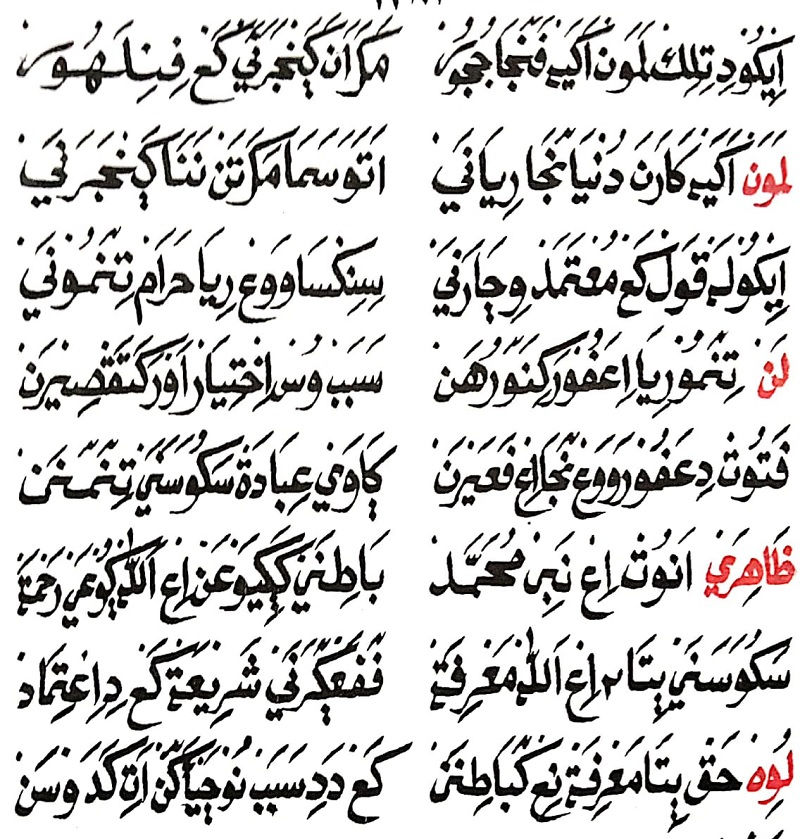 اِيْكُوْ دِتِلِكْ لَمُونْ اَكَيَهْ فَنْجَا جُجُوْرْ مَكَ اَنَ كَنْجَرَنَيْ كَعْ فِنِلَهُوْرْ
لَمُونْ اَكَيَهْ كَارَنَ دُنْيَا نَجَا رِيَانَيْ اَتَوَ سَمَا مَكَ تَنْ نَنَا كَنْجَرَنَيْ
اِيْكُوْلَهْ قَوْلْ كَعْ مُعْتَمَدْ وِجَارَنَيْ سِنِكْسَا وَوْعْ رِيَا حَرَامْ تِنَمُوْنَيْ
لَنْ تِنَمُوْ رِيَا اِعَفُوْرَ كِنَوْرُهَنْ سَبَبْ وُسْ اِخْتِيَارْ اَوْرَ كَتَقْصِيْرَنْ
فَتُوْتْ دِعَفُوْرَ وَوْعْ نَجَا اِعْ فَعَيْرَنْ كَلَوَيْ عِبَادَةْ سَكُوَسَنَيْ تِنَمْنَنْ
ظَاهِرَيْ اَنُوْتْ اِعْ نَبِيْ مُحَمَّدْ بَاطِنَيْ كَكَيَوْعَنْ اِعْ اَللّٰهْ كَوُعَيْ رَحْمَةْ
سَكُوَسَنَيْ بِتَا٢ اِعْ اَللّٰهْ مَعْرِفَةْ فَفَعْكَرَنَيْ شَرِيْعَةْ كَعْ دِاِعْتِمَادْ
لَوِهْ حَقْ بِتَا مَعْرِفَةْ نِعْ كَبَاطِنَنْ كَعْ دَدِ سَبَبْ نُوْجِيَأَكَنْ اَتِ كَدَوْسَنْ